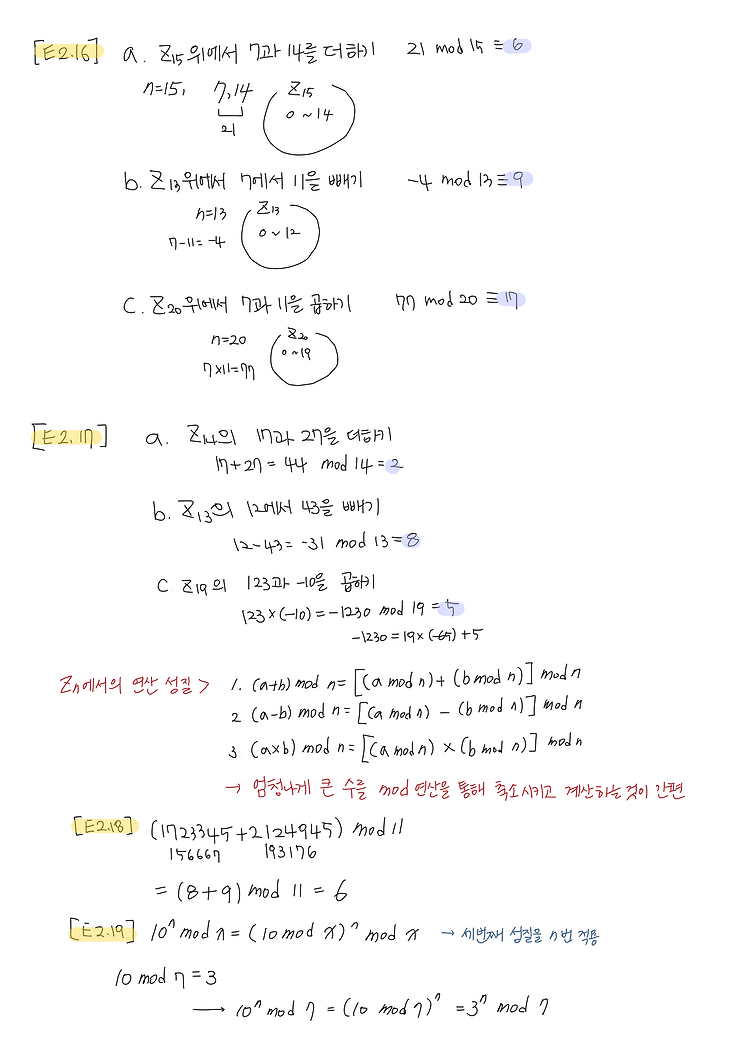 [E2.16] a. Z15위에서 7과 14를 더하기 21 mod 15 ≡ 6
n=15, 7,14 Z15
21 0 ~ 14
b. Z13위에서 7에서 11을 빼기 -4 mod 13 ≡ 9
n=13 Z13
7-11=-4 0 ~ 12
C. Z20위에서 7과 11을 곱하기 77 mod 20 ≡ 17
n=20 Z20
7×11=77 0~19
[E2.17] a. Z14의 17과 27을 더하기
17+27 = 44 mod 14 = 2
b. Z13의 12에서 43을 빼기
12-43 = -31 mod 13 = 8
C Z19의 123과 -10을 곱하기
123×(-10) = -1230 mod 19 = 5
-1230 = 19×(-65)+5
Zn에서의 연산 성질 > 1. (a+b) mod n = [(a mod n) + (b mod n)] mod n
2 (a-b) mod n = [(a mod n) - (b mod n)] mod n
3 (a×b) mod n = [(a mod n) × (b mod n)] mod n
→ 엄청나게 큰 수를 mod 연산을 통해 축소시키고 계산하는 것이 간편
[E2.18] (1723345+2124945) mod 11
156667 193176
= (8+9) mod 11 = 6
[E2.19] 10ⁿ mod x = (10 mod x)ⁿ mod x → 세번째 성질을 n번 적용
10 mod 7 = 3
→ 10ⁿ mod 7 = (10 mod 7)ⁿ = 3ⁿ mod 7